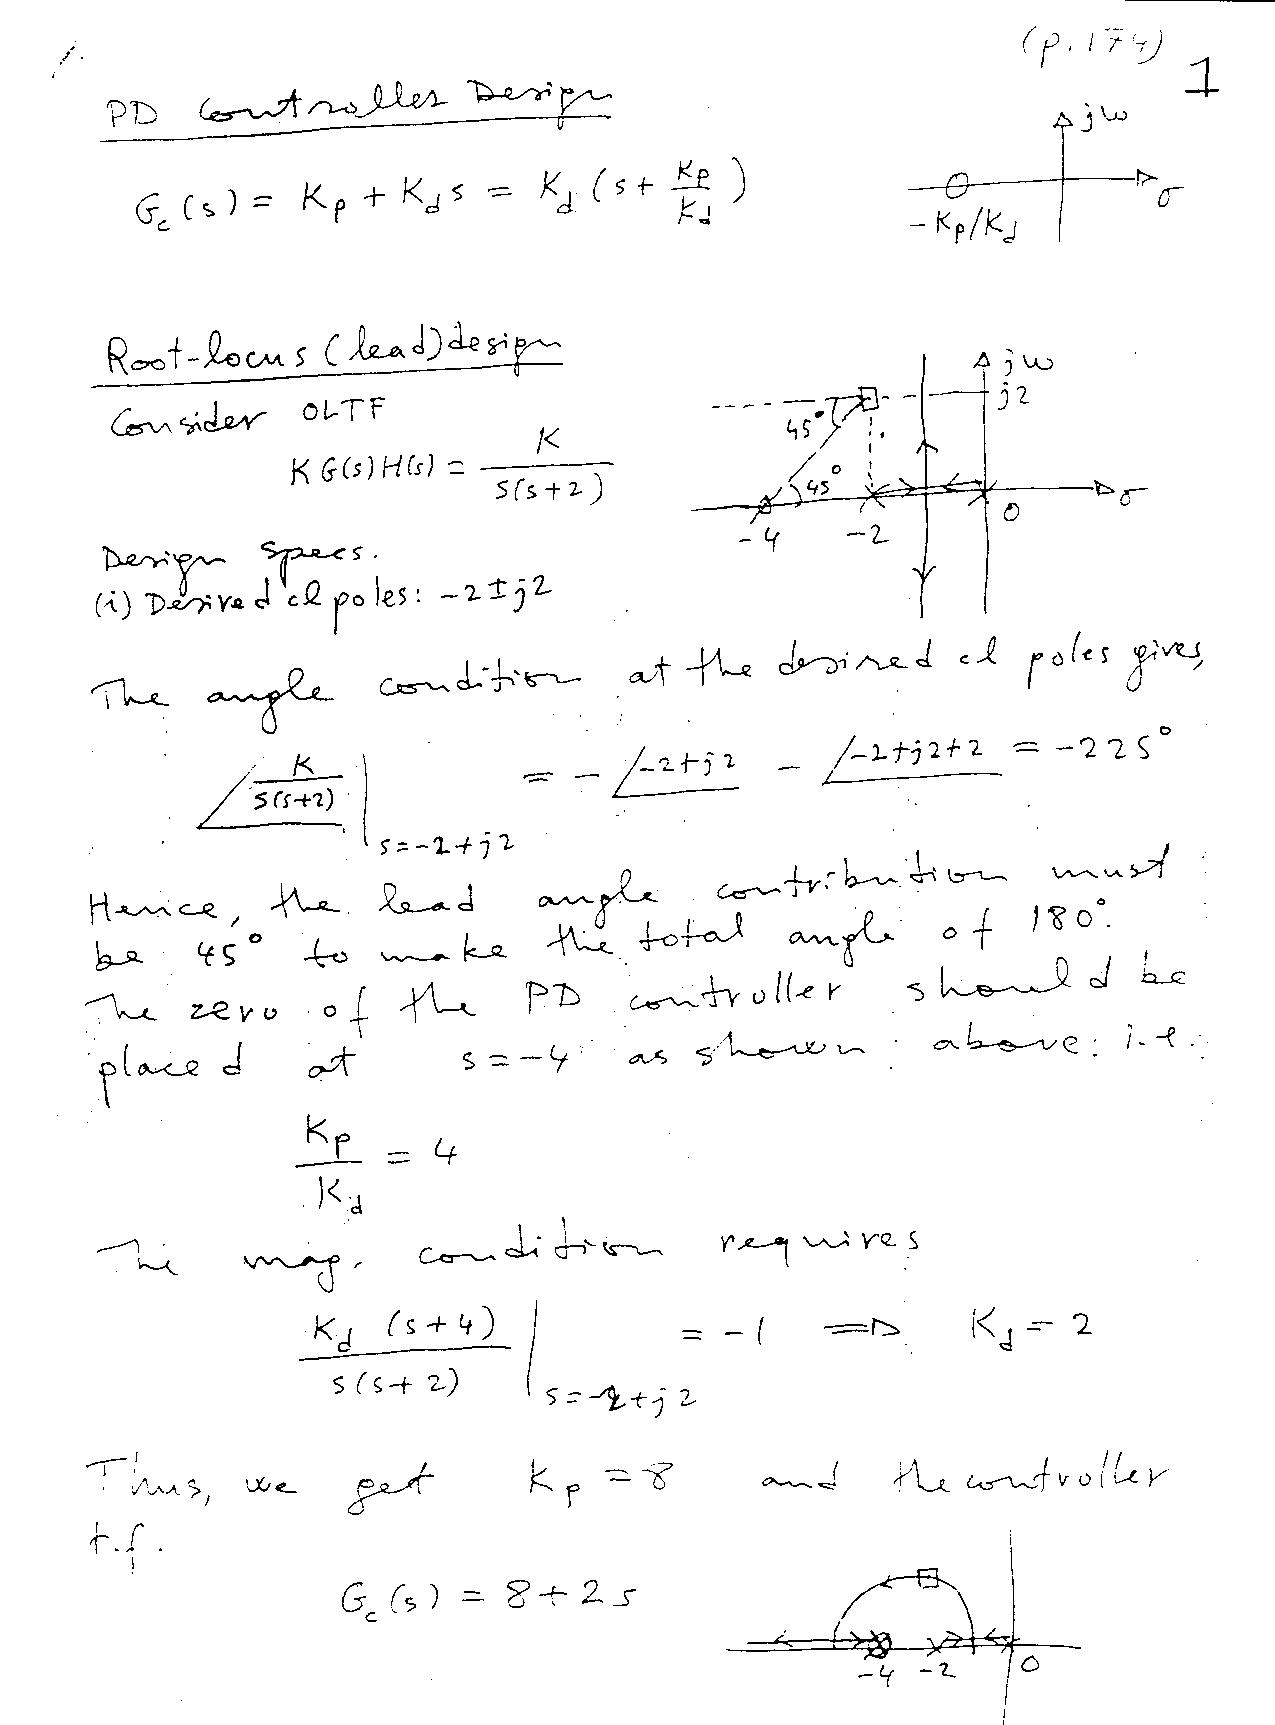 1.
(p. 174)
1
PD Controller Design
G_c(s) = K_p + K_d s = K_d (s + K_p/K_d)
jω
σ
-K_p/K_d
Root-locus (lead) design
Consider OLTF
K G(s) H(s) = K / s(s+2)
jω
j2
45°
45°
-4
-2
0
σ
Design specs.
(i) Desired cl poles: -2±j2
The angle condition at the desired cl poles gives,
∠ K / s(s+2) | s=-2+j2 = - ∠-2+j2 - ∠-2+j2+2 = -225°
Hence, the lead angle contribution must
be 45° to make the total angle of 180°.
The zero of the PD controller should be
placed at s=-4 as shown above; i.e.
K_p / K_d = 4
The mag. condition requires
K_d (s+4) / s(s+2) | s=-2+j2 = -1 ⇒ K_d = 2
Thus, we get K_p = 8 and the controller
t.f.
G_c(s) = 8 + 2s
-4
-2
0